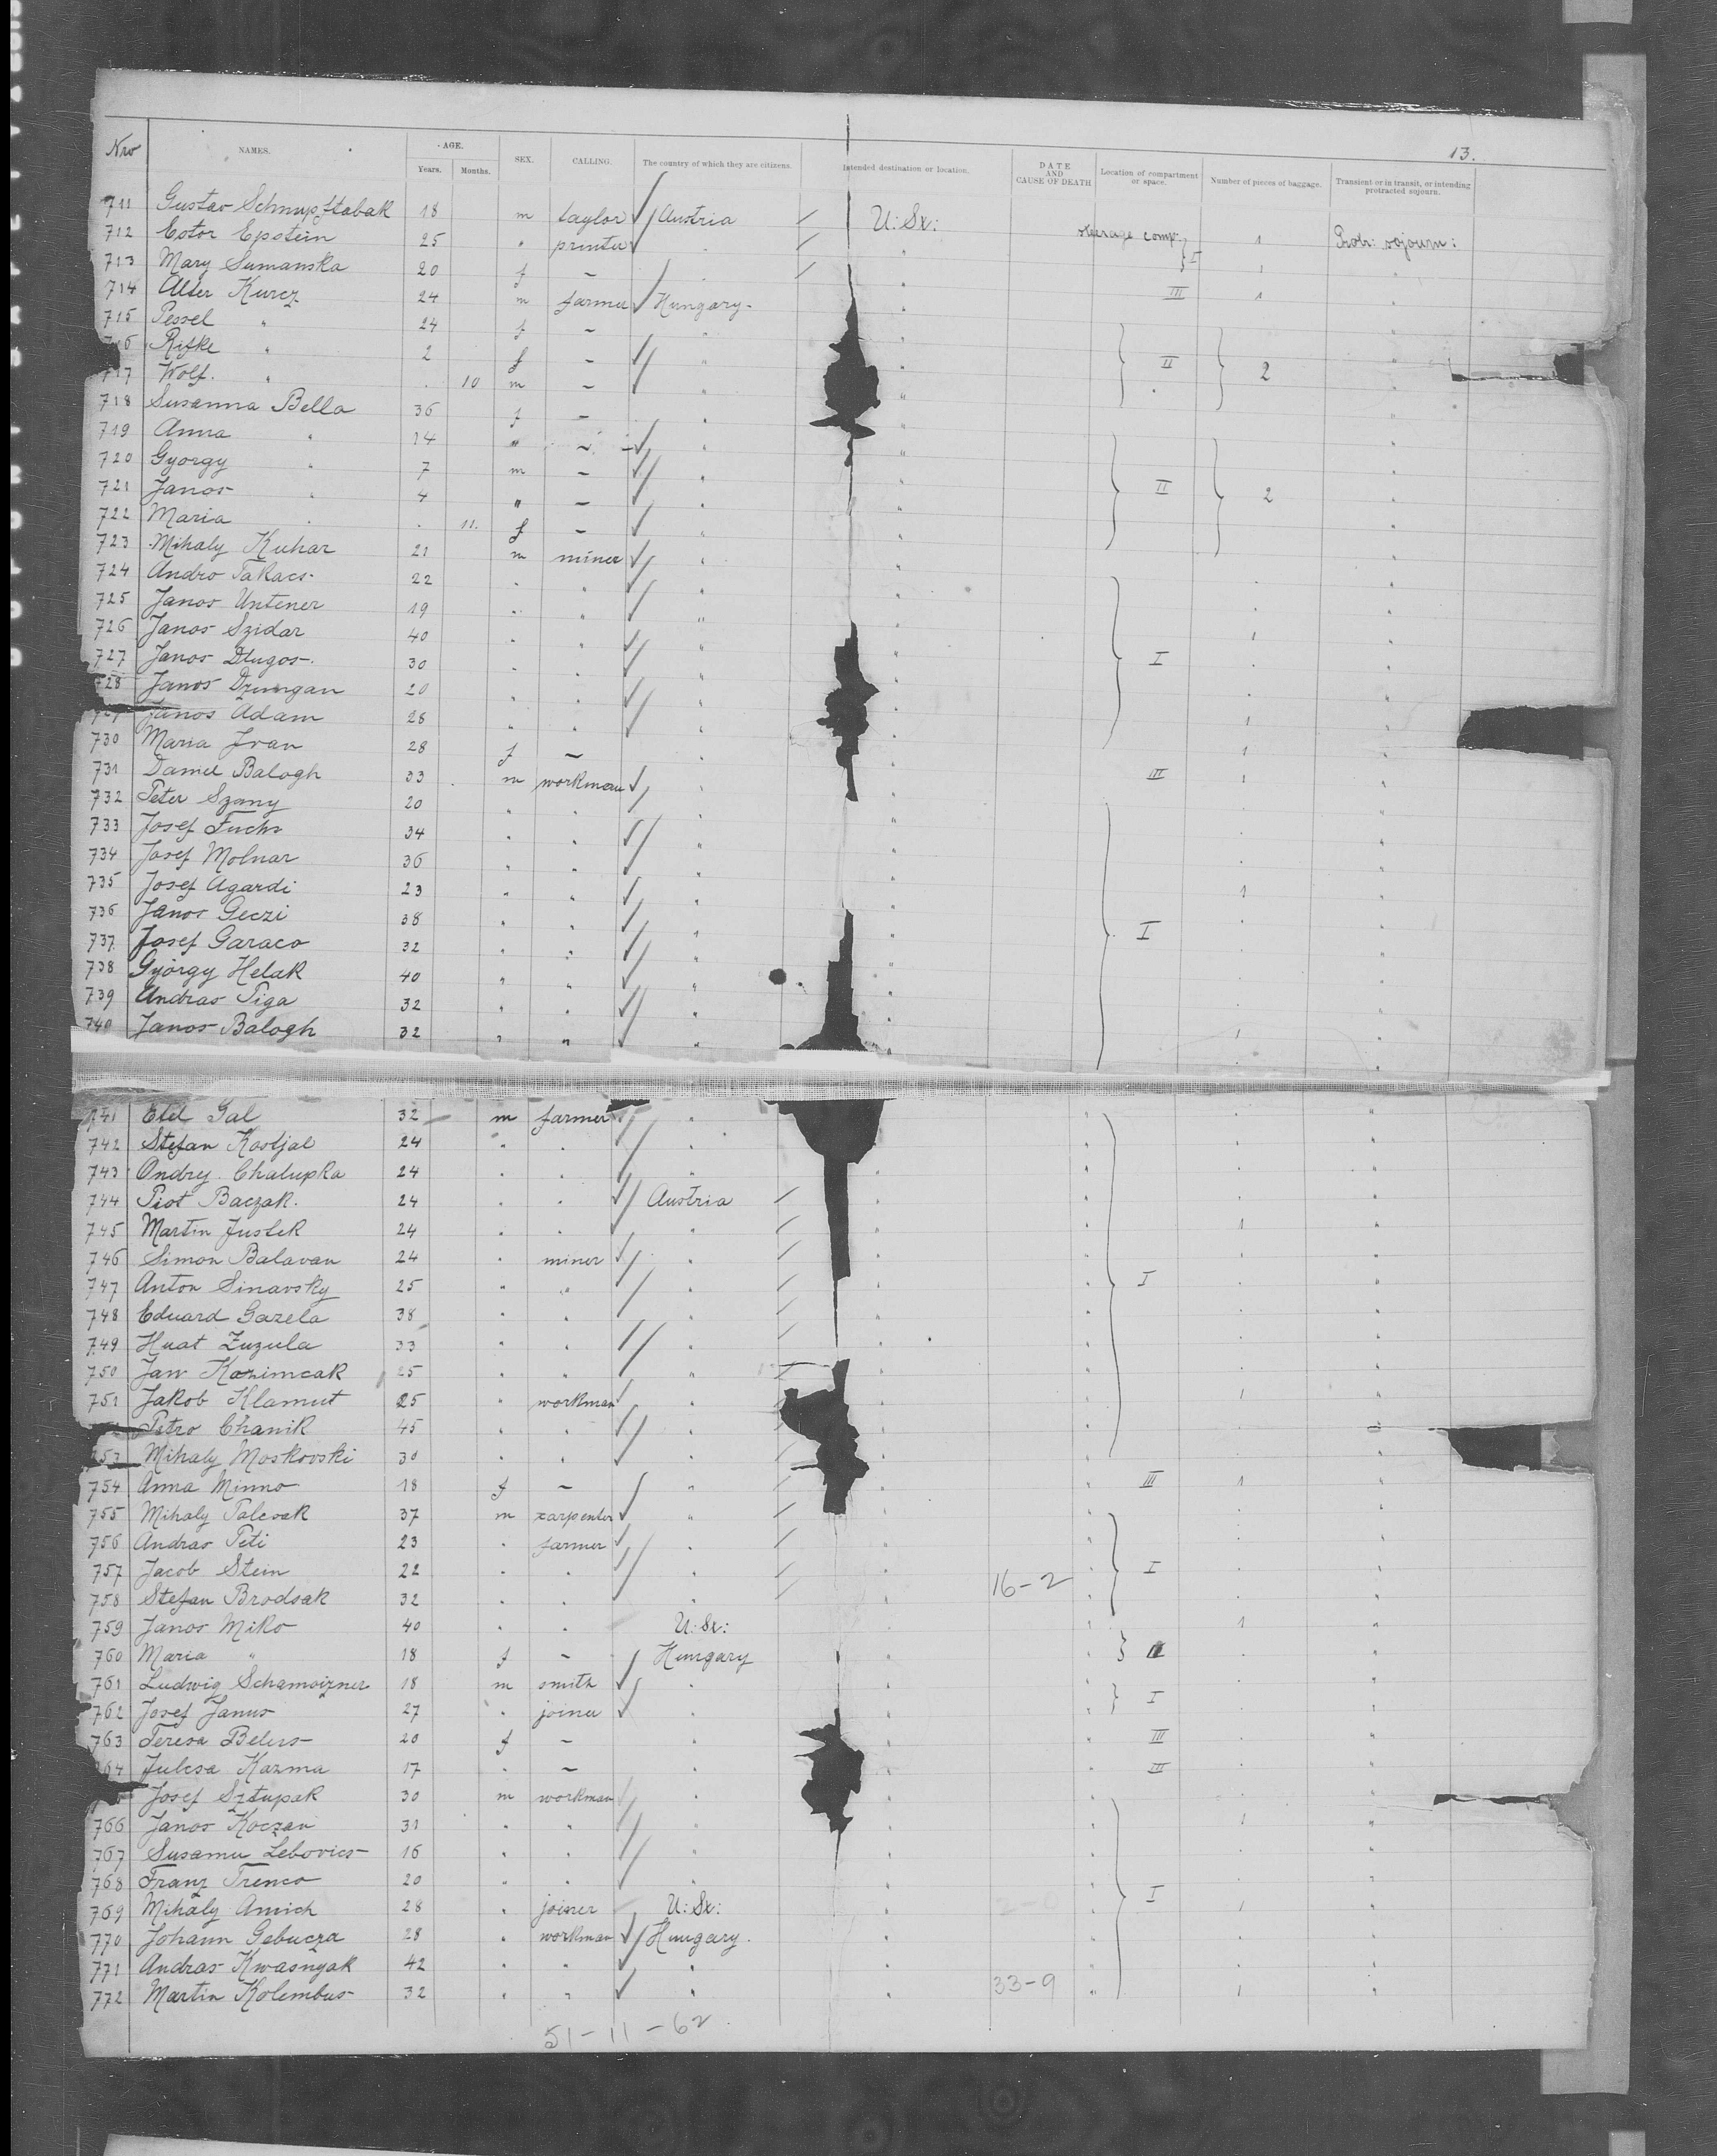 13.
Nro NAMES. AGE. Years. Months. SEX. CALLING. The country of which they are citizens. Intended destination or location. DATE AND CAUSE OF DEATH Location of compartment or space. Number of pieces of baggage. Transient or in transit, or intending protracted sojourn.
711 Gustav Schnupftabak 18 m taylor Austria U: St: steerage comp: 1 Protr: sojourn:
712 Estor Epstein 25 " printer " " I 1 "
713 Mary Sumanska 20 f — " " III 1 "
714 Alter Kurcz 24 m farmer Hungary "
715 Pessel " 24 f — " "
716 Rifke " 2 f — " " II 2 "
717 Wolf " 10 m — " "
718 Susanna Bella 36 f — " "
719 Anna " 14 " — " "
720 Gyorgy " 7 m — " "
721 Janos " 4 " — " " II 2 "
722 Maria " 11. f — " "
723 Mihaly Kuhar 21 m miner " "
724 Andro Takacs 22 " " " "
725 Janos Untener 19 " " " "
726 Janos Szidar 40 " " " " 1 "
727 Janos Dlugos 30 " " " " I "
728 Janos Dzungan 20 " " " "
Janos Adam 28 " " " " 1 "
730 Maria Ivan 28 f — " " 1 "
731 Daniel Balogh 33 m workman " " III 1 "
732 Peter Szany 20 " " " "
733 Josef Fuchs 34 " " " "
734 Josef Molnar 36 " " " "
735 Josef Agardi 23 " " " " 1 "
736 Janos Geczi 38 " " " "
737 Josef Garaco 32 " " " " I "
738 György Helak 40 " " " "
739 Andras Piga 32 " " " "
740 Janos Balogh 32 " " " " 1 "
741 Etel Gal 32 m farmer " "
742 Stefan Kostjal 24 " " " "
743 Ondrey Chalupka 24 " " " "
744 Piot Baczak. 24 " " Austria "
745 Martin Juslek 24 " " " " 1 "
746 Simon Balavan 24 " miner " "
747 Anton Sinavsky 25 " " " " I "
748 Eduard Gazela 38 " " " "
749 Huat Zuzula 33 " " " "
750 Jan Kazimcak 25 " " " "
751 Jakob Klamut 25 " workman " " 1 "
Petro Chanik 45 " " " "
753 Mihaly Moskovski 30 " " " "
754 Anna Minno 18 f — " " III 1 "
755 Mihaly Palcsak 37 m carpenter " "
756 Andras Peti 23 " farmer " "
757 Jacob Stein 22 " " " " 16-2 I "
758 Stefan Brodsak 32 " " " "
759 Janos Miko 40 " " U: St: 1 "
760 Maria " 18 f — Hungary "
761 Ludwig Schamoizner 18 m smith " "
762 Josef Janus 27 " joiner " " I "
763 Teresa Belus 20 f — " " III "
764 Julcsa Kazma 17 " — " " III "
Josef Sztupak 30 m workman " "
766 Janos Koczan 31 " " " " 1 "
767 Susamu Lebovics 16 " " " "
768 Franz Trenco 20 " " " "
769 Mihaly Amich 28 " joiner U: St: " I 1 "
770 Johann Gebucza 28 " workman Hungary. "
771 Andras Kwasnyak 42 " " " "
772 Martin Kolembus 32 " " " " 33-9 1 "
51-11-62